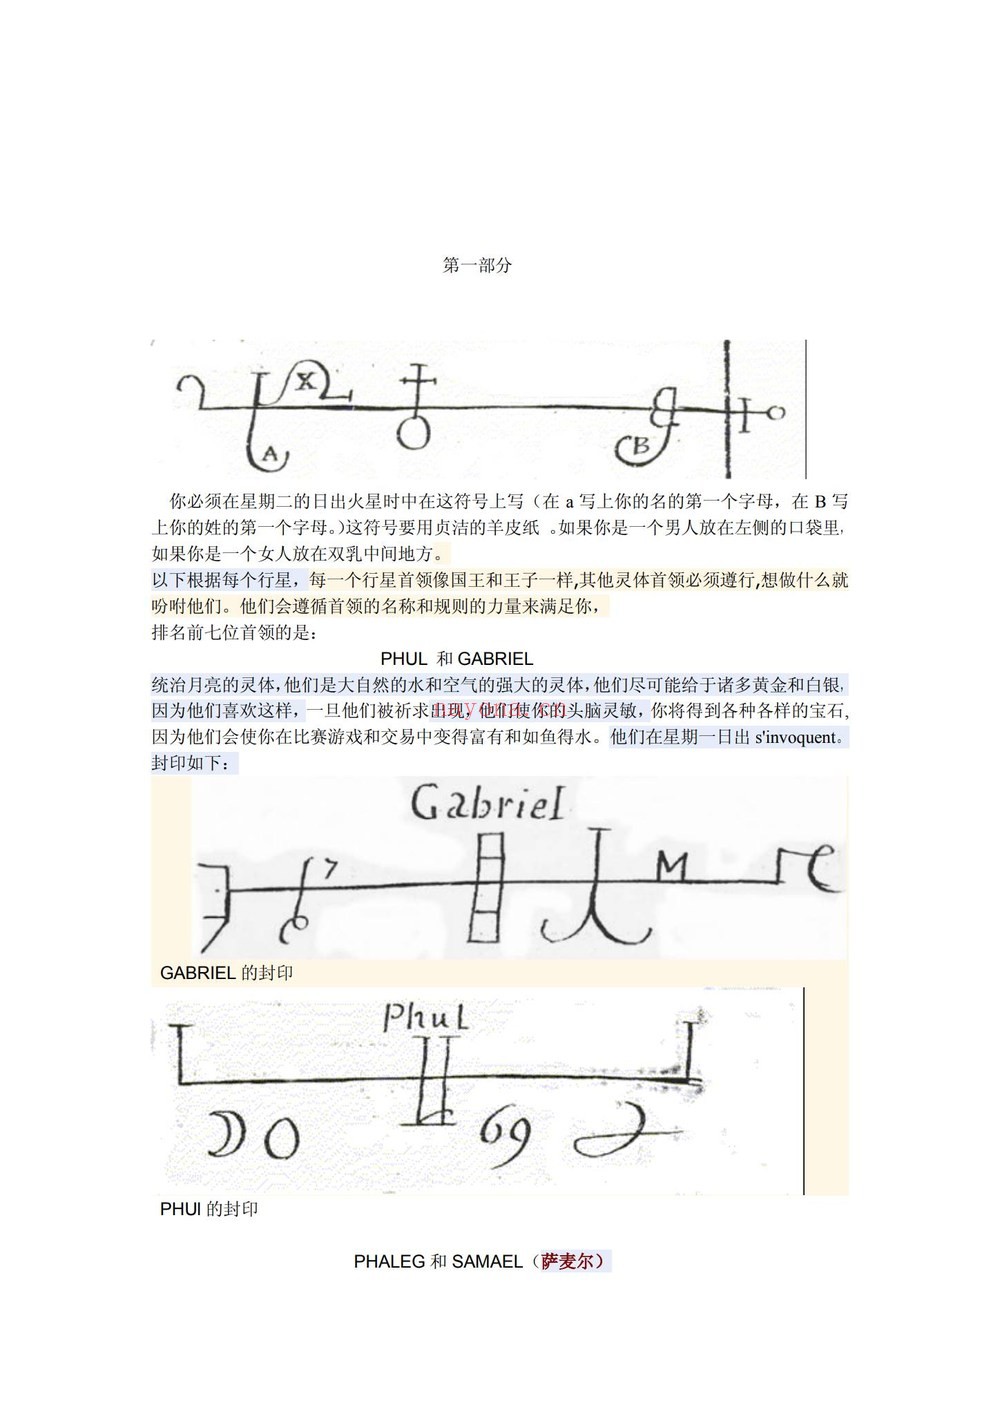 第一部分
X
A
B
你必须在星期二的日出火星时中在这符号上写（在 a 写上你的名的第一个字母，在 B 写
上你的姓的第一个字母。）这符号要用贞洁的羊皮纸 。如果你是一个男人放在左侧的口袋里，
如果你是一个女人放在双乳中间地方。
以下根据每个行星，每一个行星首领像国王和王子一样,其他灵体首领必须遵行,想做什么就
吩咐他们。他们会遵循首领的名称和规则的力量来满足你，
排名前七位首领的是：
PHUL 和 GABRIEL
统治月亮的灵体，他们是大自然的水和空气的强大的灵体，他们尽可能给于诸多黄金和白银，
因为他们喜欢这样，一旦他们被祈求出现，他们使你的头脑灵敏，你将得到各种各样的宝石，
因为他们会使你在比赛游戏和交易中变得富有和如鱼得水。他们在星期一日出 s'invoquent。
封印如下：
Gabriel
7
M
GABRIEL 的封印
Phul
69
PHUl 的封印
PHALEG 和 SAMAEL（萨麦尔）